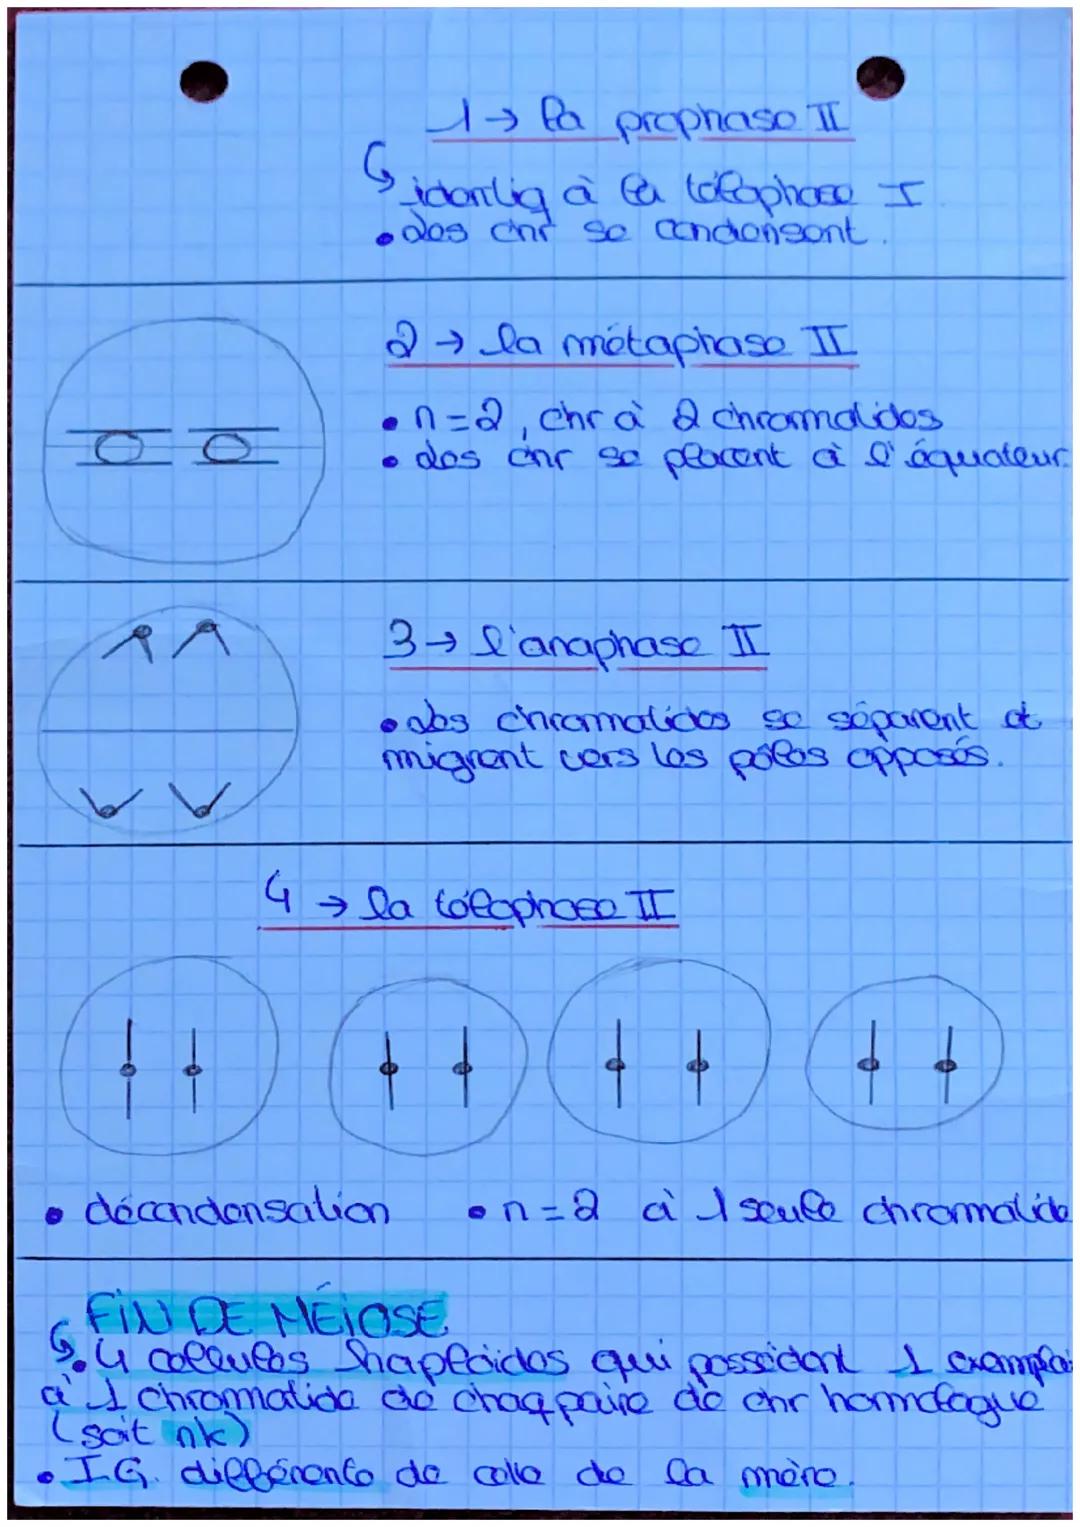 1 → la prophase II
↳ identiq à la télophase I
• des chr se condensent.
2 → la métaphase II
• n = 2, chr à 2 chromatides
• des chr se placent à l'équateur.
3 → l'anaphase II
• des chromatides se séparent et
migrent vers les pôles opposés.
4 → la télophase II
• décondensation • n = 2 à 1 seule chromatide
FIN DE MÉIOSE
↳ • 4 cellules haploïdes qui possèdent 1 exemplai
à 1 chromatide de chaq paire de chr homologue
(soit nk)
• I.G. différente de celle de la mère.